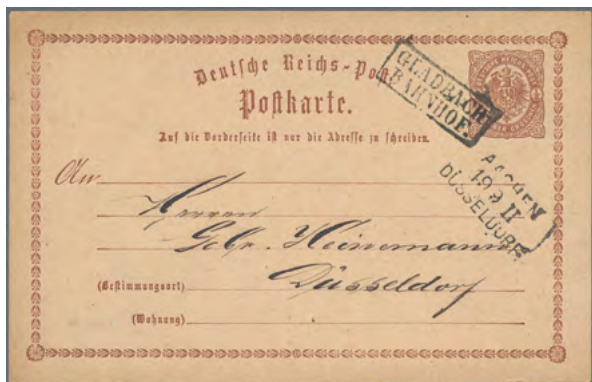 Deutsche Reichs-Post
Postkarte.
Auf die Vorderseite ist nur die Adresse zu schreiben.
GLADBACH
BAHNHOF.
AACHEN
19 9 II
DÜSSELDORF
An
Herren
Gebr. Heinemann
Düsseldorf
(Bestimmungsort)
(Wohnung)